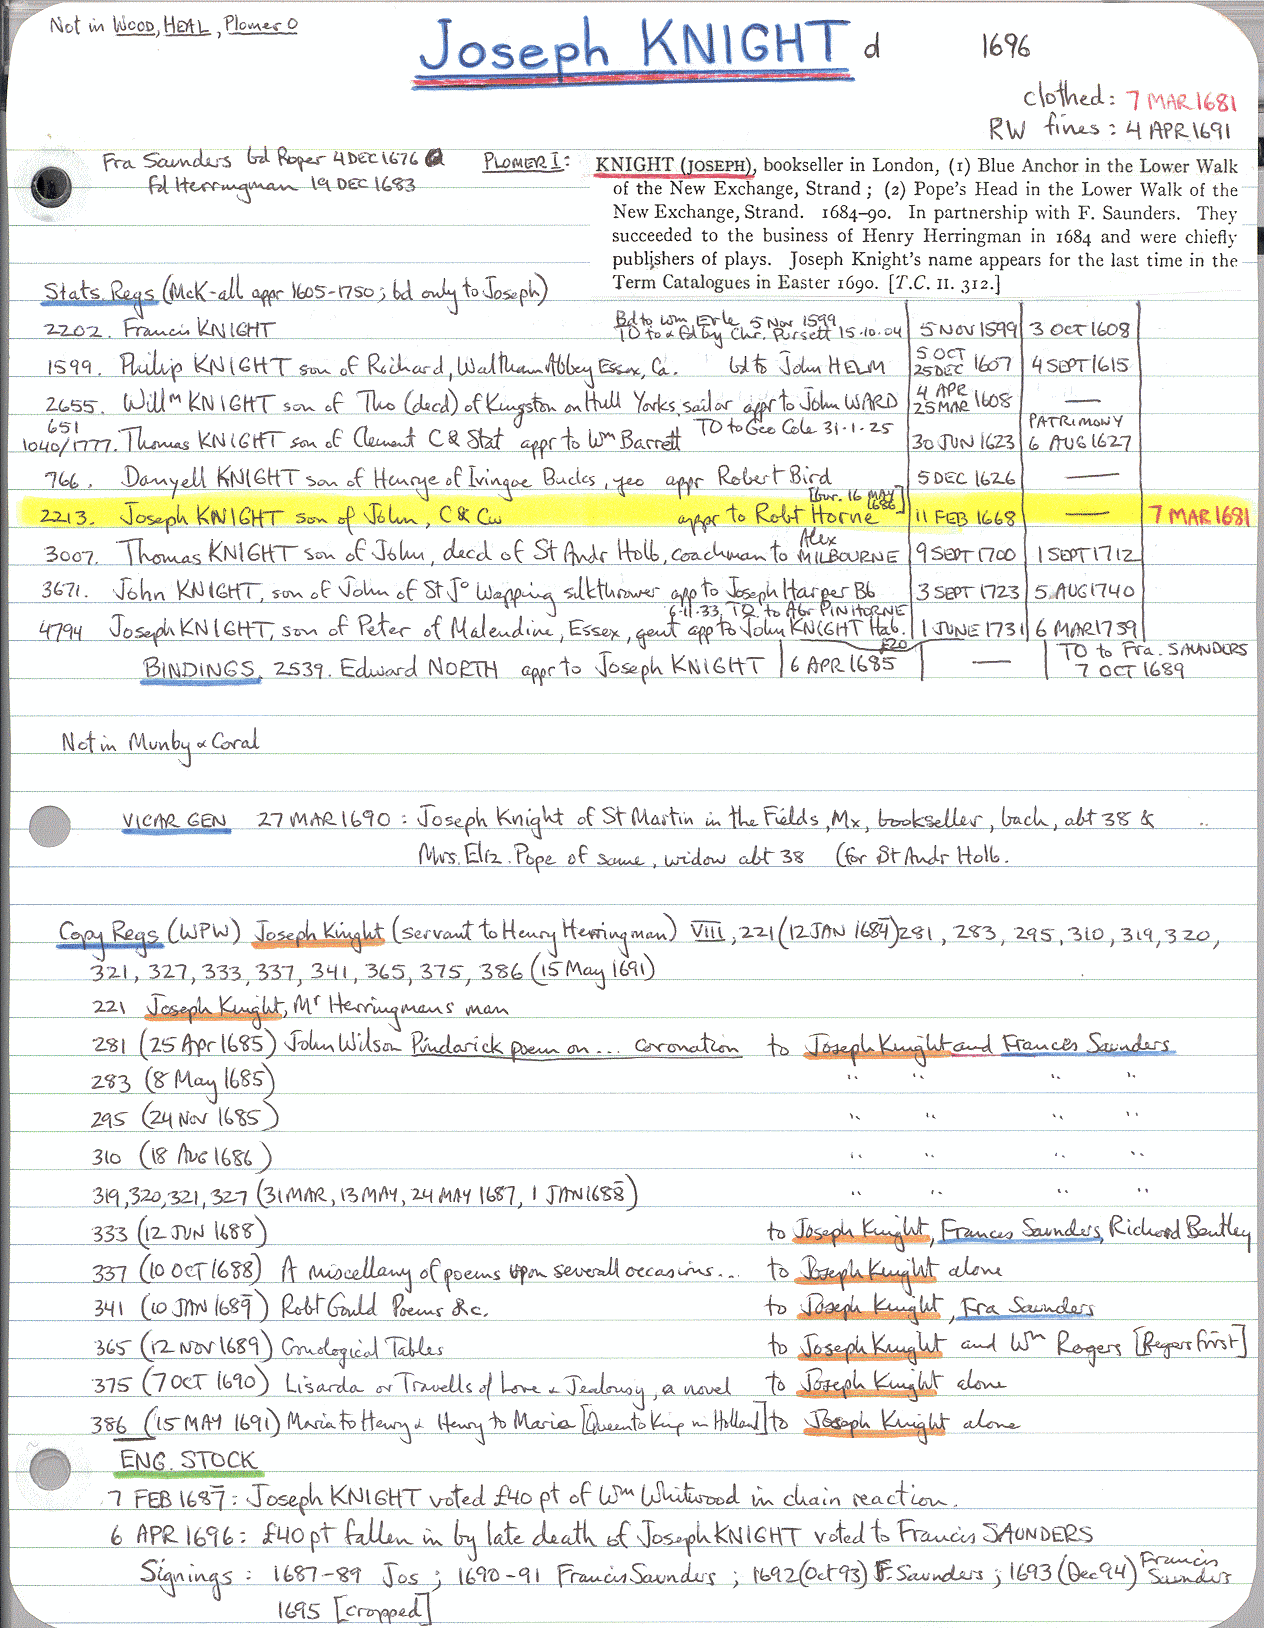 Not in WOOD, HEAL, Plomer O
Joseph KNIGHT d 1696
clothed: 7 MAR 1681
RW fines: 4 APR 1691
Fra Saunders bd Roper 4 DEC 1676
fd Herringman 19 DEC 1683
PLOMER I:
KNIGHT (JOSEPH), bookseller in London, (1) Blue Anchor in the Lower Walk
of the New Exchange, Strand; (2) Pope's Head in the Lower Walk of the
New Exchange, Strand. 1684-90. In partnership with F. Saunders. They
succeeded to the business of Henry Herringman in 1684 and were chiefly
publishers of plays. Joseph Knight's name appears for the last time in the
Term Catalogues in Easter 1690. [T.C. II. 312.]
Stats. Regs (McK-all appr 1605-1750; bd only to Joseph)
2202. Francis KNIGHT Bd to Wm Erle 5 Nov 1599 TO to & fd by Chr. Pursett 15.10.04 5 NOV 1599 3 OCT 1608
1599. Philip KNIGHT son of Richard, Waltham Abbey Essex, Ca. bd to John HELM 5 OCT 25 DEC 1607 4 SEPT 1615
2655. Willm KNIGHT son of Tho (decd) of Kingston on Hull Yorks, sailor appr to John WARD 4 APR 25 MAR 1608 —
651 1040/1777. Thomas KNIGHT son of Clement C & Stat appr to Wm Barrett TO to Geo Cole 31-1-25 30 JUN 1623 PATRIMONY 6 AUG 1627
766. Danyell KNIGHT son of Henrye of Ivingoe Bucks, yeo appr Robert Bird 5 DEC 1626 —
2213. Joseph KNIGHT son of John, C & Cw appr to Robt Horne [bur. 16 MAY 1686] 11 FEB 1668 — 7 MAR 1681
3007. Thomas KNIGHT son of John, decd of St Andr Holb, coachman to Alex MILBOURNE 9 SEPT 1700 1 SEPT 1712
3671. John KNIGHT, son of John of St Jo Wapping silkthrower app to Joseph Harper Bb 3 SEPT 1723 5 AUG 1740
6.11.33, TO to Abr PINHORNE
4794 Joseph KNIGHT, son of Peter of Malendine, Essex, gent app to John KNIGHT Hab. £20 1 JUNE 1731 6 MAR 1739
BINDINGS. 2539. Edward NORTH appr to Joseph KNIGHT 6 APR 1685 — TO to Fra. SAUNDERS 7 OCT 1689
Not in Munby & Coral
VICAR GEN 27 MAR 1690: Joseph Knight of St Martin in the Fields, Mx, bookseller, bach, abt 38 &
Mrs. Eliz. Pope of same, widow abt 38 (for St Andr Holb.
Copy Regs (WPW) Joseph Knight (servant to Henry Herringman) VIII, 221 (12 JAN 1684) 281, 283, 295, 310, 319, 320,
321, 327, 333, 337, 341, 365, 375, 386 (15 May 1691)
221 Joseph Knight, Mr Herringmans man
281 (25 Apr 1685) John Wilson Pindarick poem on... coronation to Joseph Knight and Frances Saunders
283 (8 May 1685) " " " "
295 (24 Nov 1685) " " " "
310 (18 Aug 1686) " " " "
319, 320, 321, 327 (31 MAR, 13 MAY, 24 MAY 1687, 1 JAN 1688) " " " "
333 (12 JUN 1688) to Joseph Knight, Frances Saunders, Richard Bentley
337 (10 OCT 1688) A miscellany of poems upon severall occasions... to Joseph Knight alone
341 (10 JAN 1689) Robt Gould Poems &c. to Joseph Knight, Fra Saunders
365 (12 NOV 1689) Cronological Tables to Joseph Knight and Wm Rogers [Rogers first]
375 (7 OCT 1690) Lisarda or Travells of Love & Jealousy, a novel to Joseph Knight alone
386 (15 MAY 1691) Maria to Henry & Henry to Maria [Queen to King in Holland] to Joseph Knight alone
ENG. STOCK
7 FEB 1687: Joseph KNIGHT voted £40 pt of Wm Whitwood in chain reaction.
6 APR 1696: £40 pt fallen in by late death of Joseph KNIGHT voted to Francis SAUNDERS
Signings: 1687-89 Jos; 1690-91 Francis Saunders; 1692 (Oct 93) F. Saunders; 1693 (Dec 94) Francis Saunders
1695 [cropped]